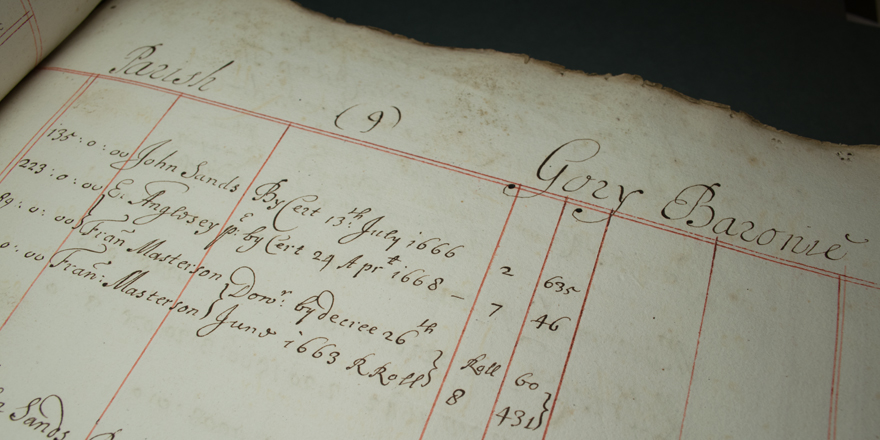 Parish (9) Gory Baronie
135 : 0 : 00 John Sands By Cert 13th July 1666 2 635
223 : 0 : 00 E: Anglosey pe: by Cert 24 Aprt 1668 – 7 46
89 : 0 : 00 Fran Masterson Dowr. by decree 26th Roll 60
0 : 00 Fran: Masterson June 1663 R Roll 8 431
Sands